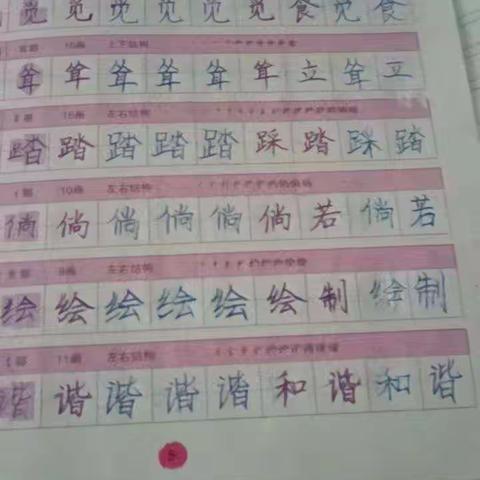 觅 觅 觅 觅 觅 食 觅 食
10画 上下结构
耸 耸 耸 耸 耸 耸 立 耸 立
15画 左右结构
踏 踏 踏 踏 踏 踩 踏 踩 踏
10画 左右结构
倘 倘 倘 倘 倘 倘 若 倘 若
9画 左右结构
绘 绘 绘 绘 绘 绘 制 绘 制
11画 左右结构
谐 谐 谐 谐 谐 和 谐 和 谐